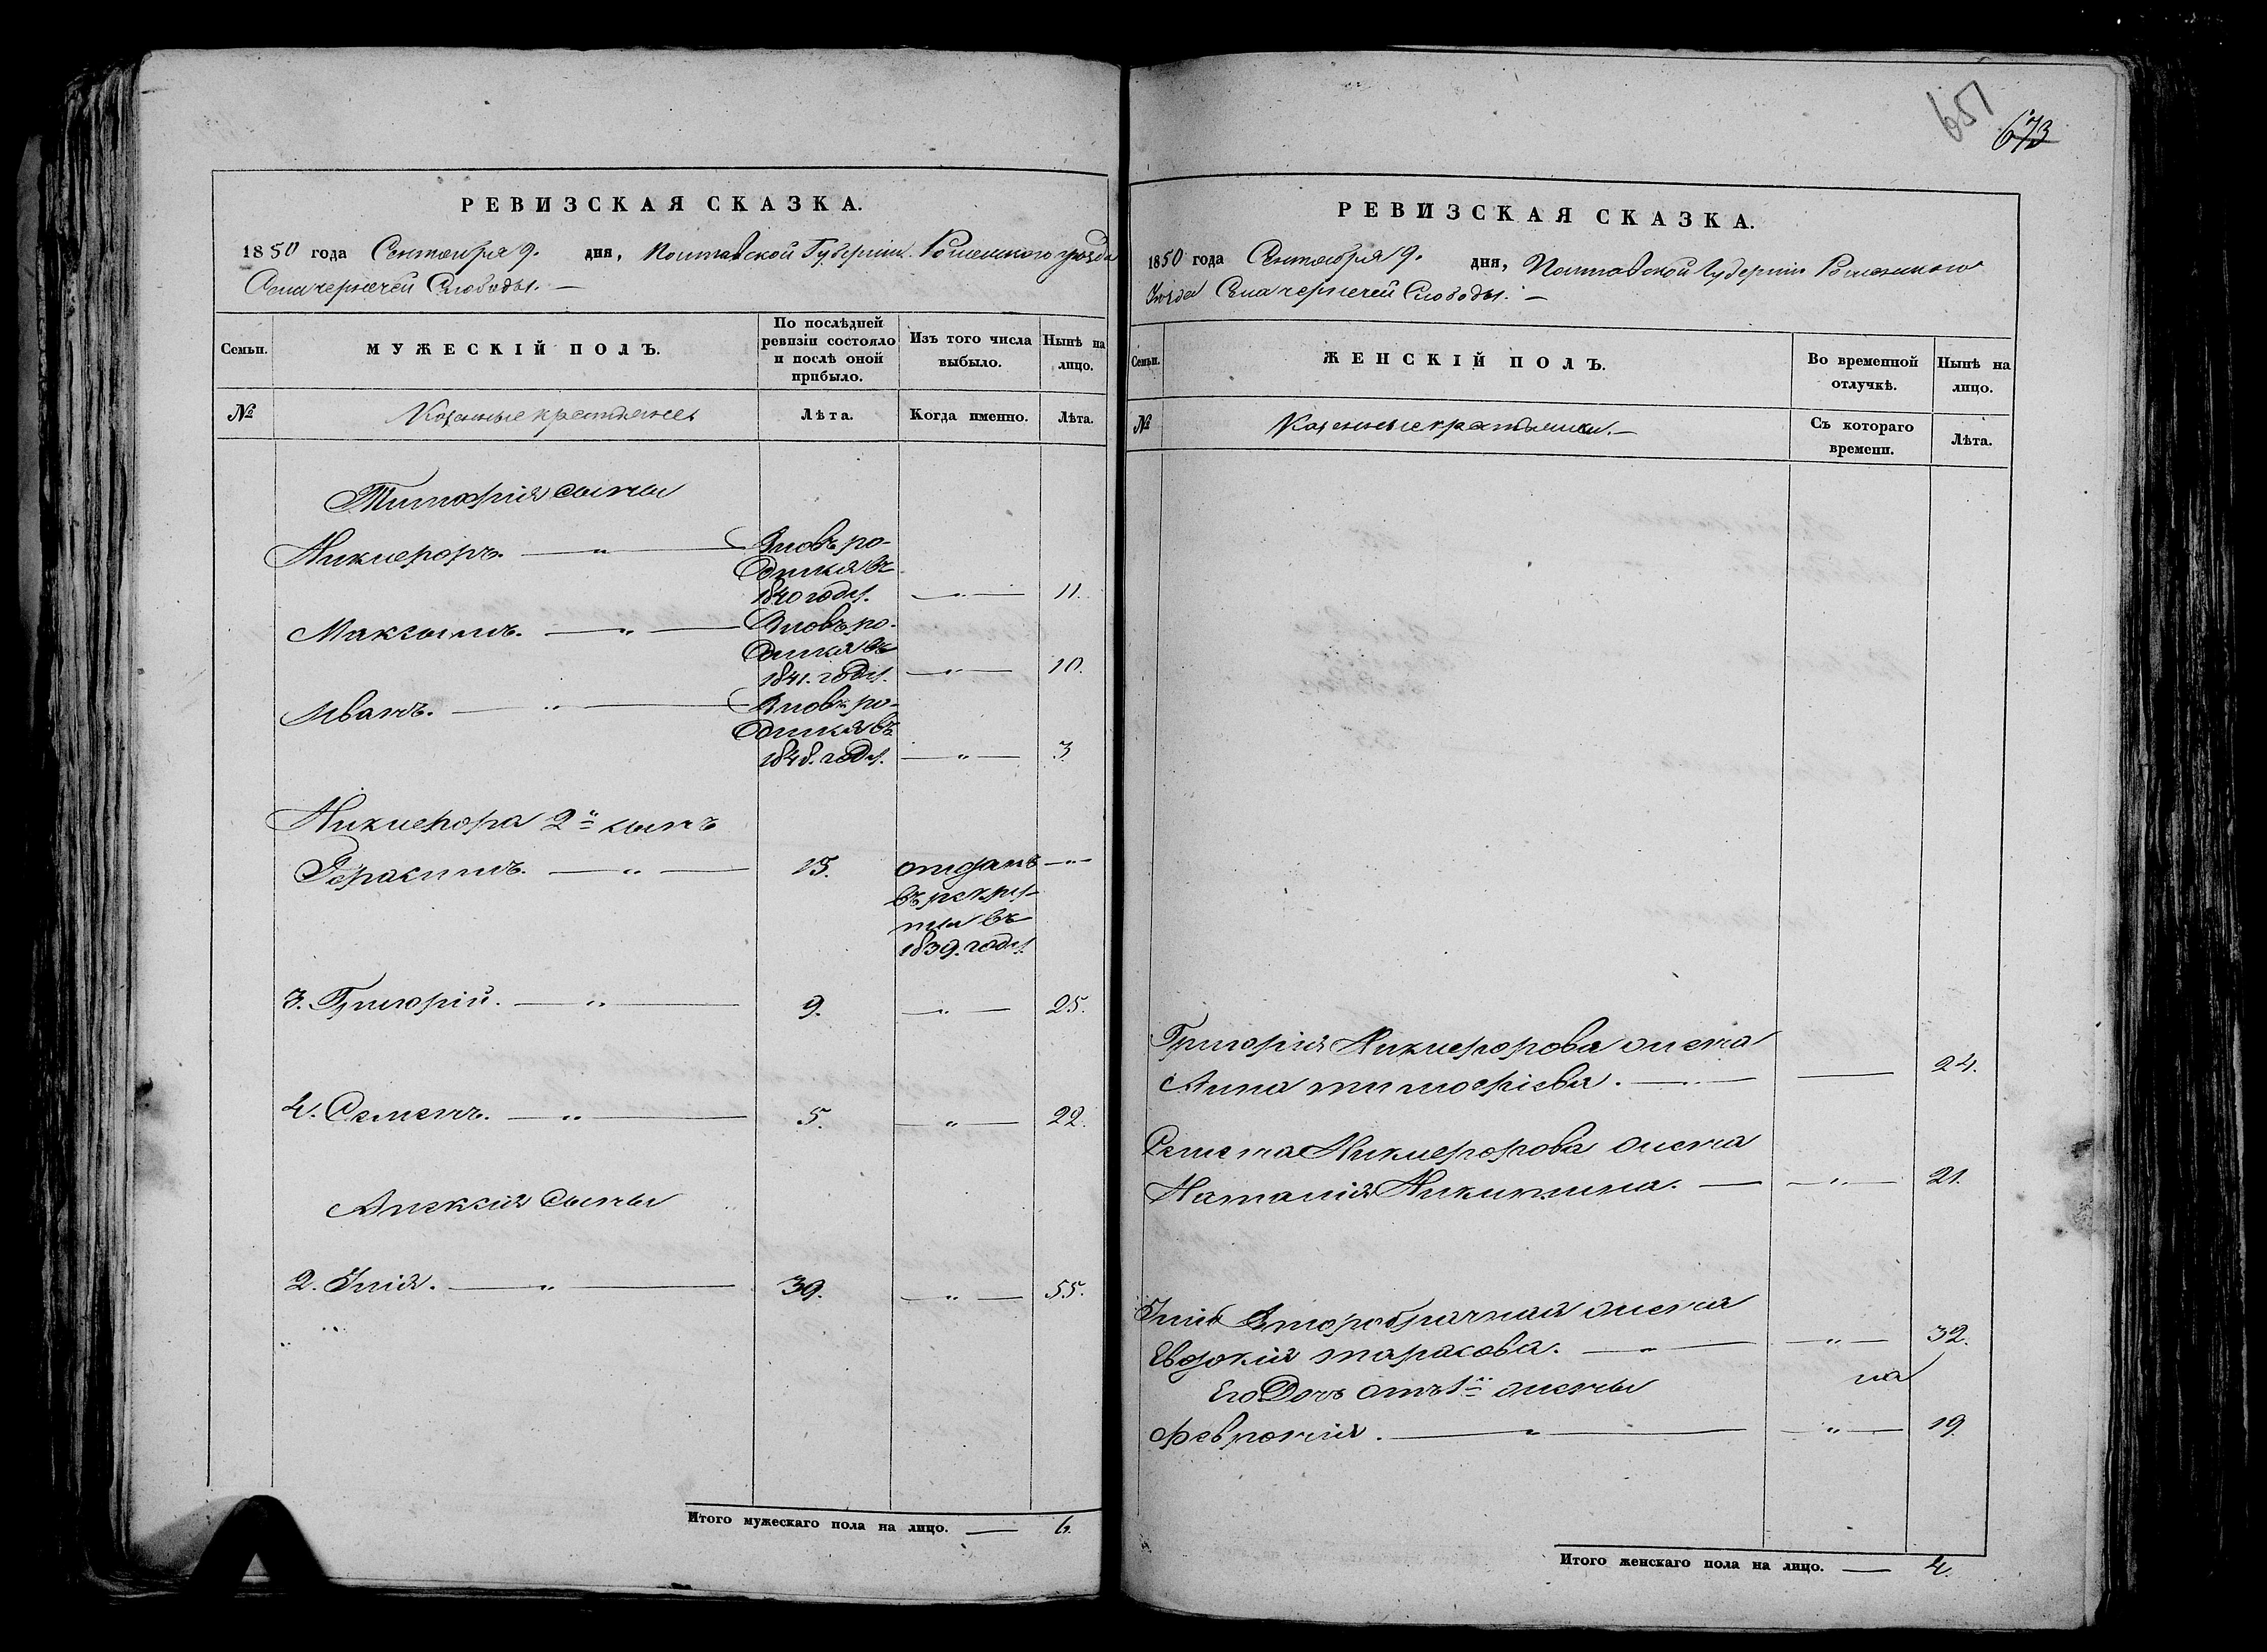 РЕВИЗСКАЯ СКАЗКА.
1850 года Сентября 9. дня, Полтавской Губернии Роменского уезда
Села чернечей Слободы. —
Семьи.
МУЖЕСКІЙ ПОЛЪ.
По послѣдней ревизіи состояло и послѣ оной прибыло.
Изъ того числа выбыло.
Нынѣ на лицо.
№
Казенные крестьяне
Лѣта.
Когда именно.
Лѣта.
Тимофія сыны
Никиефоръ. — „ — Вновь ро-
дился въ
1840 году. — „ — 11.
Максымъ. — „ — Вновь ро-
дился въ
1841. году. — „ — 10.
Иванъ. — „ — Вновь ро-
дился въ
1848. году. — „ — 3
Никиефора 2й сынъ
Герасимъ. — „ — 15. отданъ — „ —
въ рекру-
ты въ
1839. году
3. Григорій. — „ — 9. — „ — 25.
4. Семенъ. — „ — 5. — „ — 22.
Алексія Сыны
2. Илія. — „ — 39. — „ — 55.
Итого мужескаго пола на лицо. — 6.
651
673
РЕВИЗСКАЯ СКАЗКА.
1850 года Сентября 9. дня, Полтавской Губернии Роменского
Уезда Села чернечей Слободы. —
Семьи.
ЖЕНСКІЙ ПОЛЪ.
Во временной отлучкѣ.
Нынѣ на лицо.
№
Казенные крестьянки. —
Съ котораго времени.
Лѣта.
Григорія Никиефорова жена
Анна тимофіева. — „ — — 24.
Семена Никиефорова жена
Наталія Никитина. — — „ — 21.
Иліи Второбрачная жена
Евдокія тарасова. — „ — — „ — 32.
Его Дочь отъ 1й жены
Февронія. — „ — — „ — 19.
Итого женскаго пола на лицо. — 4.